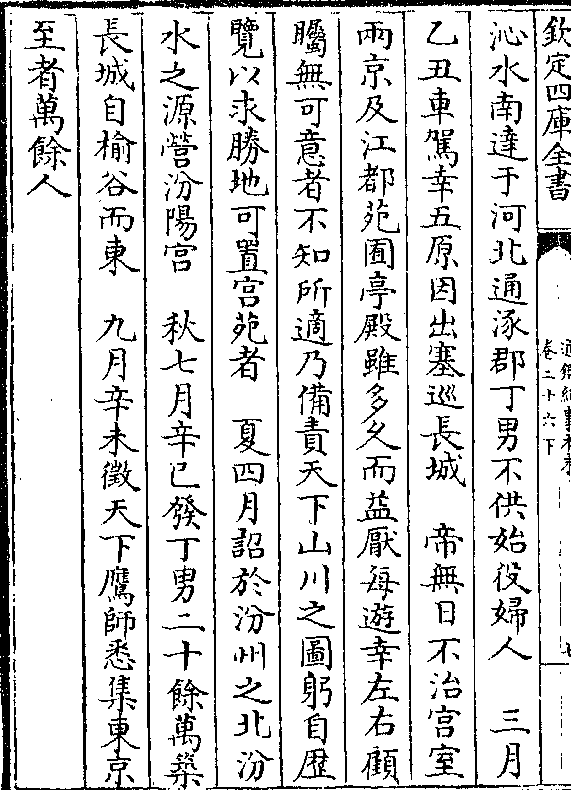 欽定四庫全書
通鑑紀事本末
卷二十六下
沁水南達于河北通涿郡丁男不供始役婦人　三月
乙丑車駕幸五原因出塞巡長城　帝無日不治宫室
兩京及江都苑囿亭殿雖多久而益厭每遊幸左右顧
矚無可意者不知所適乃備責天下山川之圖躬自歴
覽以求勝地可置宫苑者　夏四月詔於汾州之北汾
水之源營汾陽宫　秋七月辛巳發丁男二十餘萬築
長城自榆谷而東　九月辛未徵天下鷹師悉集東京
至者萬餘人